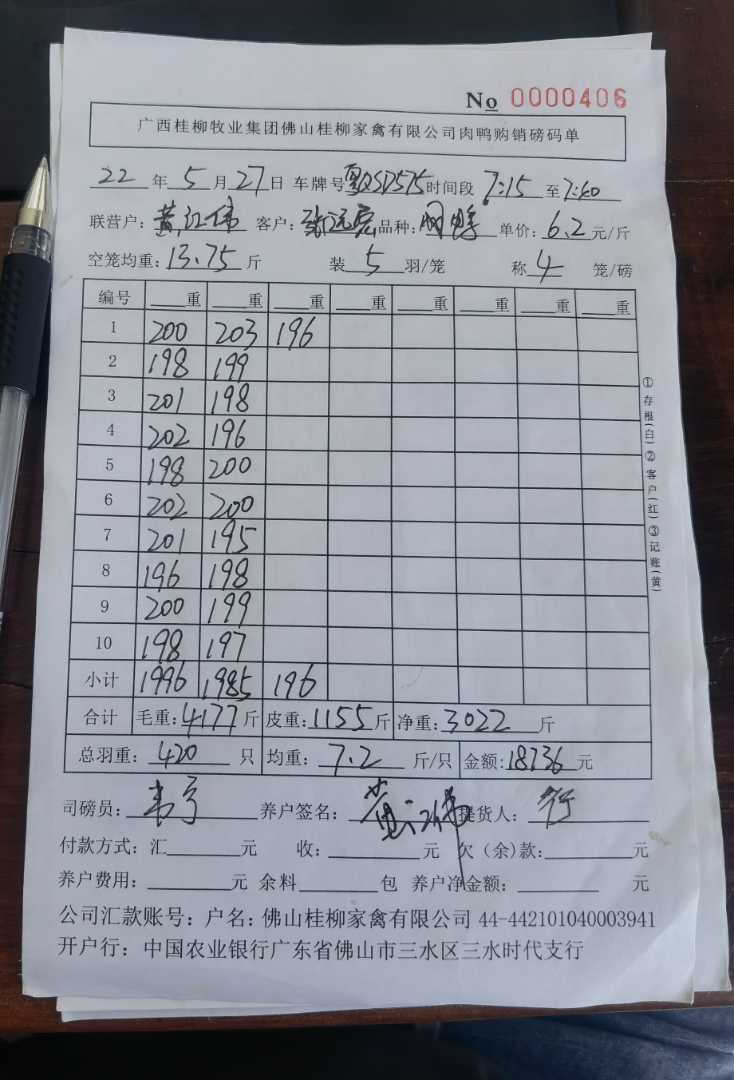 No 0000406
广西桂柳牧业集团佛山桂柳家禽有限公司肉鸭购销磅码单
22年5月27日 车牌号粤QSD575时间段 7:15 至7:40
联营户:黄江伟 客户:张远宏 品种: 单价:6.2元/斤
空笼均重:13.75斤 装5羽/笼 称4笼/磅
编号 重 重 重 重 重 重 重 重
1 200 203 196
2 198 199
3 201 198
4 202 196
5 198 200
6 202 200
7 201 195
8 196 198
9 200 199
10 198 197
小计 1996 1985 196
合计 毛重:4177斤 皮重:1155斤 净重:3022斤
总羽重:420只 均重:7.2斤/只 金额:18736元
司磅员: 养户签名: 提货人:
付款方式:汇 元 收: 元 欠(余)款: 元
养户费用: 元 余料 包 养户净金额: 元
公司汇款账号:户名:佛山桂柳家禽有限公司 44-442101040003941
开户行:中国农业银行广东省佛山市三水区三水时代支行
①存根(白)②客户(红)③记账(黄)